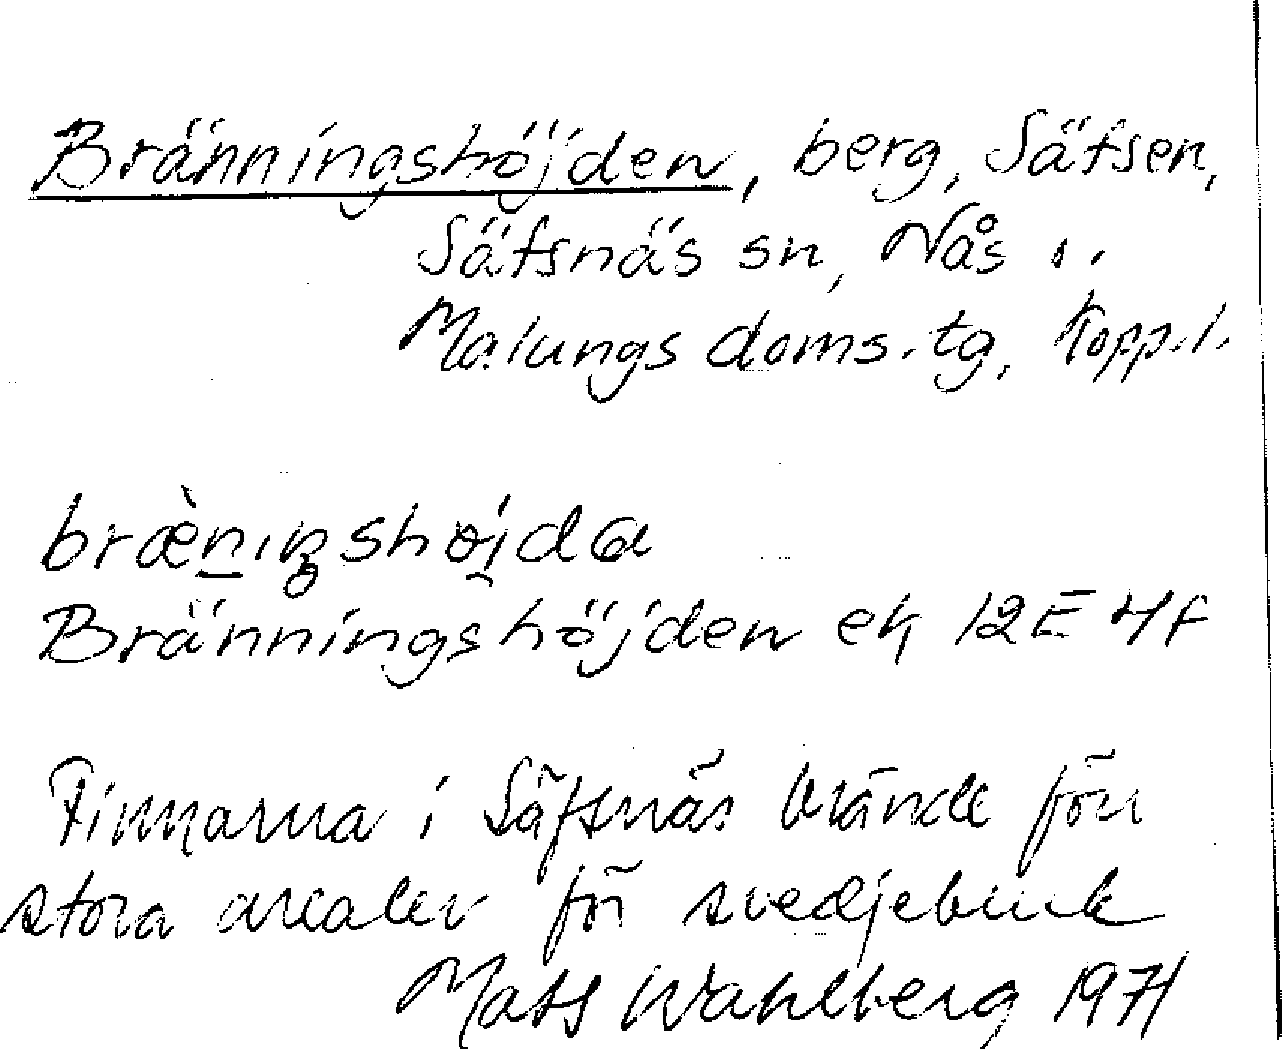 Bränningshöjden, berg, Säfsen,
Säfsnäs sn, Nås o.
Malungs doms.tg, Kopp.l.
bræ̀nıŋshøjda
Bränningshöjden ek 12E 4f
Finnarna i Säfsnäs brände förr
stora arealer för svedjebruk
Mats Wahlberg 1971